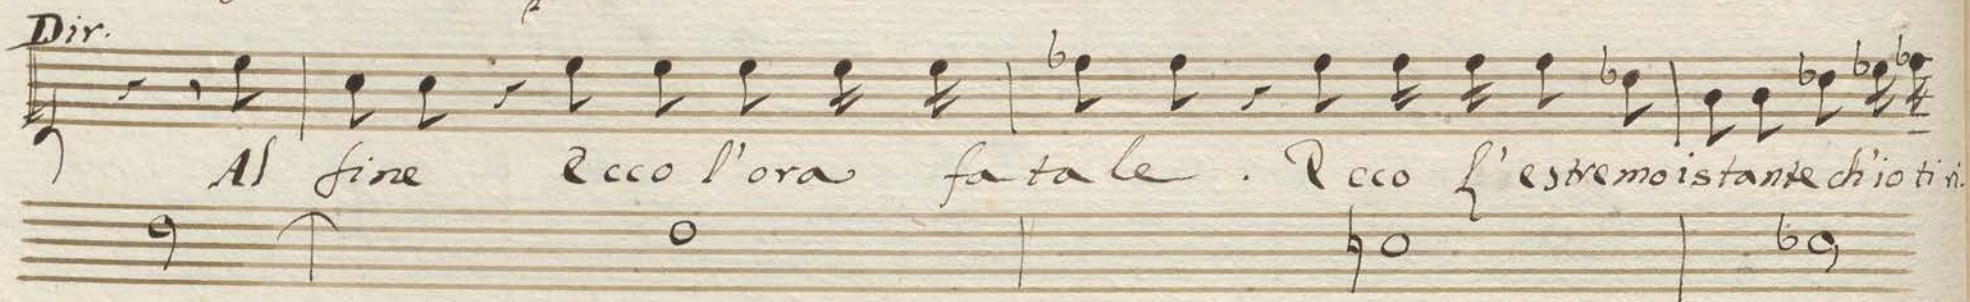 Dir.
Al fine Ecco l'ora fatale. Ecco l'estremo istante ch'io ti ri.